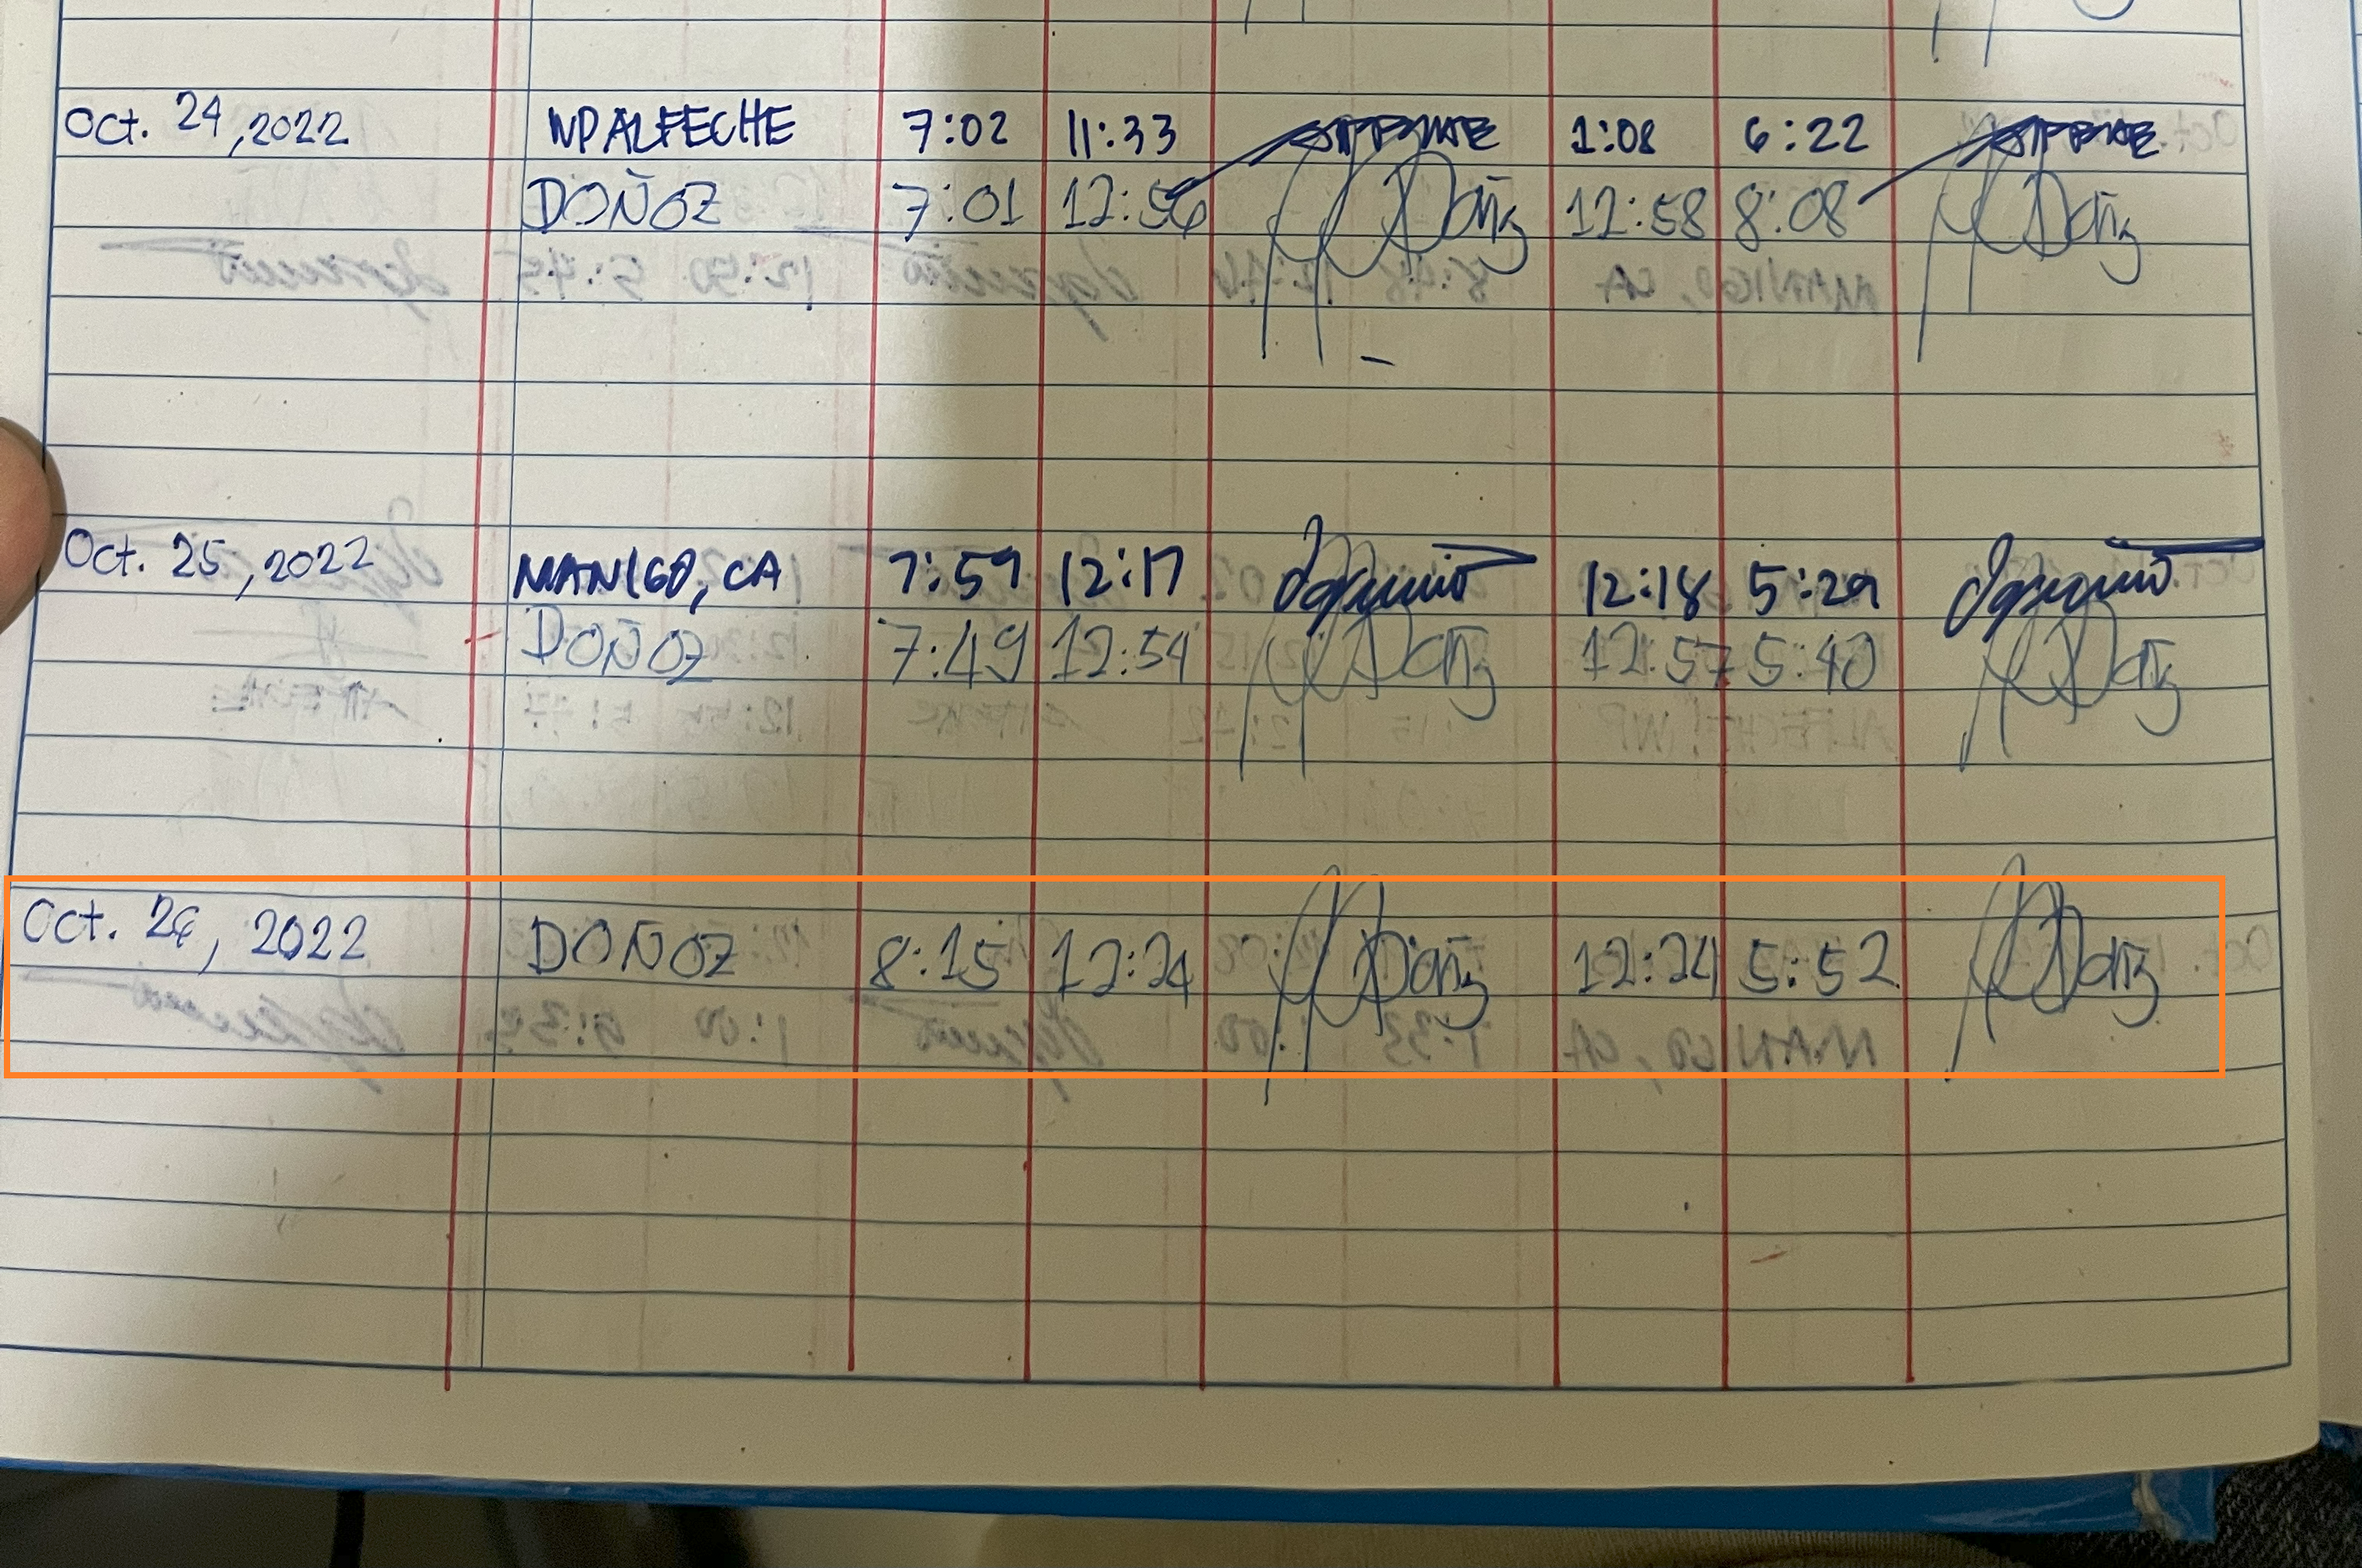 Oct. 24, 2022 NPALFECHE 7:02 11:33 1:08 6:22
DOÑOZ 7:01 12:56 12:58 8:08
Oct. 25, 2022 MANIGO, CA 7:59 12:17 12:18 5:29
DOÑOZ 7:49 12:54 12:57 5:40
Oct. 26, 2022 DOÑOZ 8:15 12:24 12:24 5:52